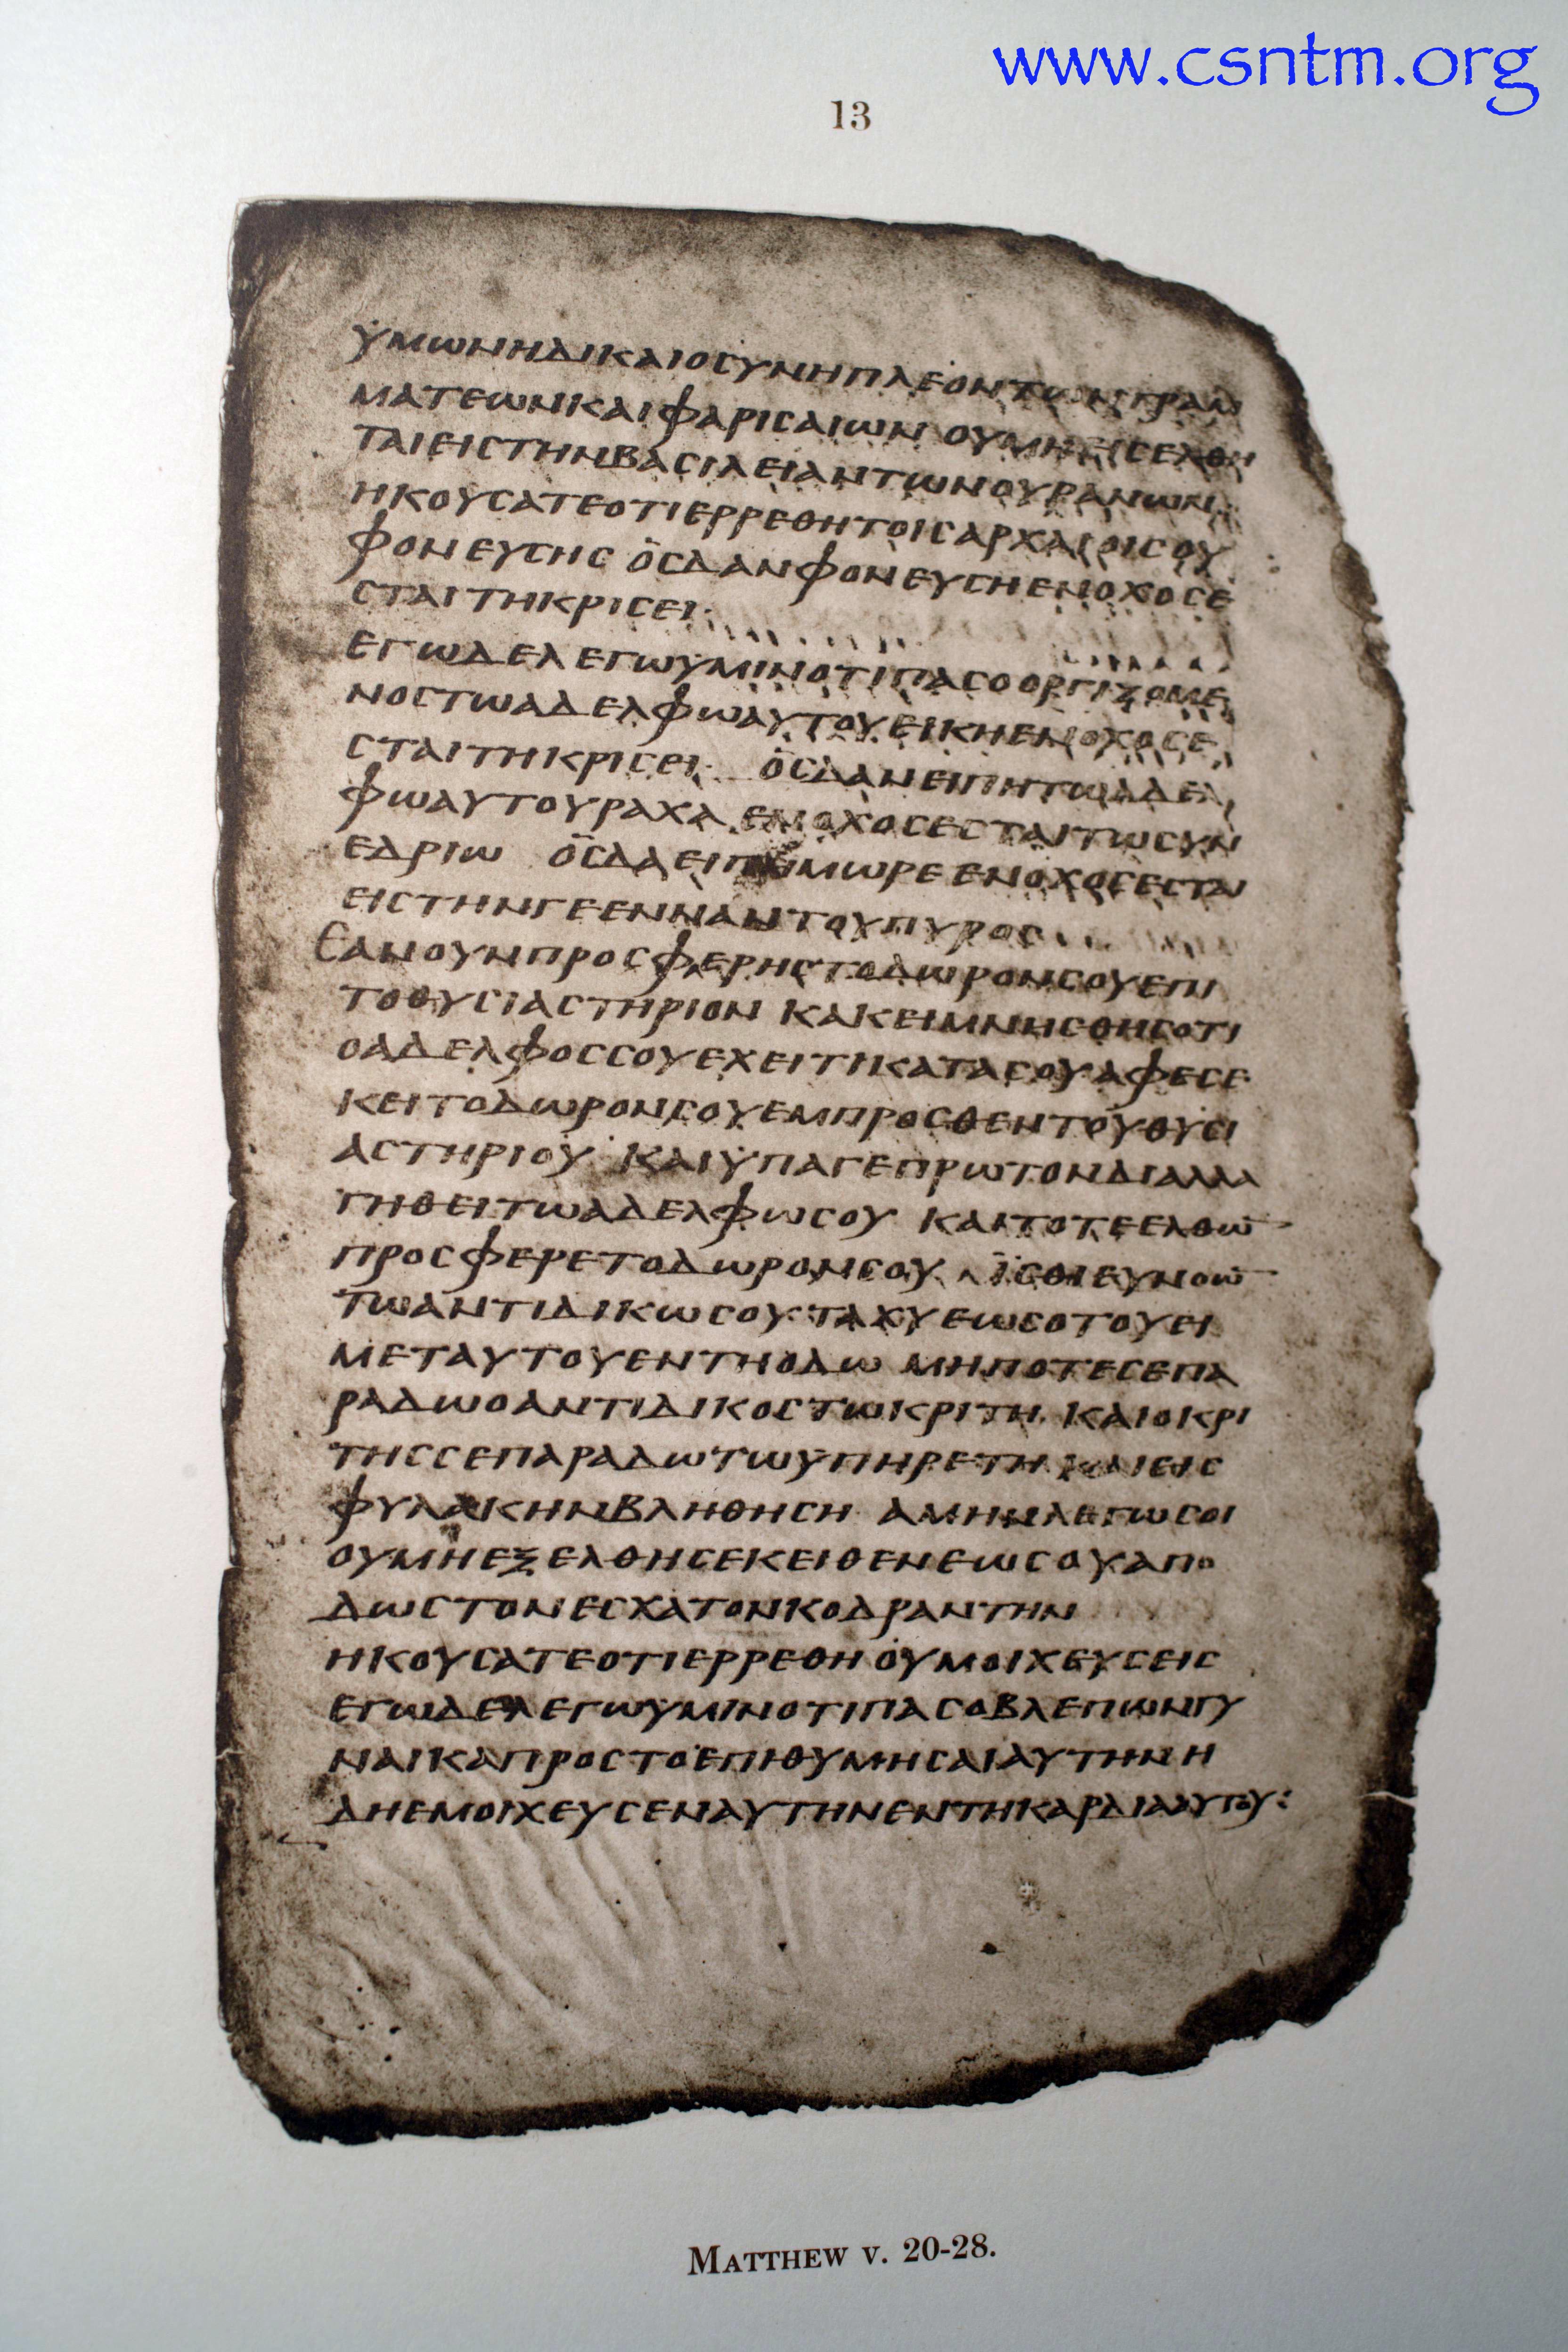 www.csntm.org
13
ΫΜΩΝΗΔΙΚΑΙΟCΥΝΗΠΛΕΟΝΤΩΝΓΡΑΜ
ΜΑΤΕΩΝΚΑΙΦΑΡΙCΑΙΩΝ ΟΥΜΗΕΙCΕΛΘΗ
ΤΑΙΕΙCΤΗΝΒΑCΙΛΕΙΑΝΤΩΝΟΥΡΑΝΩΝ·
ΗΚΟΥCΑΤΕΟΤΙΕΡΡΕΘΗΤΟΙCΑΡΧΑΙΟΙCΟΥ
ΦΟΝΕΥCΗC ΟCΔΑΝΦΟΝΕΥCΗΕΝΟΧΟCΕ
CΤΑΙΤΗΚΡΙCΕΙ·
ΕΓΩΔΕΛΕΓΩΫΜΙΝΟΤΙΠΑCΟΟΡΓΙΖΟΜΕ
ΝΟCΤΩΑΔΕΛΦΩΑΥΤΟΥΕΙΚΗΕΝΟΧΟCΕ
CΤΑΙΤΗΚΡΙCΕΙ· ΟCΔΑΝΕΙΠΗΤΩΑΔΕΛ
ΦΩΑΥΤΟΥΡΑΧΑ ΕΝΟΧΟCΕCΤΑΙΤΩCΥΝ
ΕΔΡΙΩ ΟCΔΑΕΙΠΗΜΩΡΕΕΝΟΧΟCΕCΤΑΙ
ΕΙCΤΗΝΓΕΕΝΝΑΝΤΟΥΠΥΡΟC
ΕΑΝΟΥΝΠΡΟCΦΕΡΗCΤΟΔΩΡΟΝCΟΥΕΠΙ
ΤΟΘΥCΙΑCΤΗΡΙΟΝ ΚΑΚΕΙΜΝΗCΘΗCΟΤΙ
ΟΑΔΕΛΦΟCCΟΥΕΧΕΙΤΙΚΑΤΑCΟΥΑΦΕCΕ
ΚΕΙΤΟΔΩΡΟΝCΟΥΕΜΠΡΟCΘΕΝΤΟΥΘΥCΙ
ΑCΤΗΡΙΟΥ ΚΑΙΫΠΑΓΕΠΡΩΤΟΝΔΙΑΛΛΑ
ΓΗΘΕΙΤΩΑΔΕΛΦΩCΟΥ ΚΑΙΤΟΤΕΕΛΘΩ̅
ΠΡΟCΦΕΡΕΤΟΔΩΡΟΝCΟΥ ΪCΘΙΕΥΝΟΩ̅
ΤΩΑΝΤΙΔΙΚΩCΟΥ ΤΑΧΥΕΩCΟΤΟΥΕΙ
ΜΕΤΑΥΤΟΥΕΝΤΗΟΔΩ ΜΗΠΟΤΕCΕΠΑ
ΡΑΔΩΟΑΝΤΙΔΙΚΟCΤΩΚΡΙΤΗ ΚΑΙΟΚΡΙ
ΤΗCCΕΠΑΡΑΔΩΤΩΫΠΗΡΕΤΗ ΚΑΙΕΙC
ΦΥΛΑΚΗΝΒΛΗΘΗCΗ ΑΜΗΝΛΕΓΩCΟΙ
ΟΥΜΗΕΞΕΛΘΗCΕΚΕΙΘΕΝΕΩCΟΥΑΠΟ
ΔΩCΤΟΝΕCΧΑΤΟΝΚΟΔΡΑΝΤΗΝ
ΗΚΟΥCΑΤΕΟΤΙΕΡΡΕΘΗ ΟΥΜΟΙΧΕΥCΕΙC
ΕΓΩΔΕΛΕΓΩΫΜΙΝΟΤΙΠΑCΟΒΛΕΠΩΝΓΥ
ΝΑΙΚΑΠΡΟCΤΟΕΠΙΘΥΜΗCΑΙΑΥΤΗΝΗ
ΔΗΕΜΟΙΧΕΥCΕΝΑΥΤΗΝΕΝΤΗΚΑΡΔΙΑΑΥΤΟΥ:
MATTHEW V. 20-28.